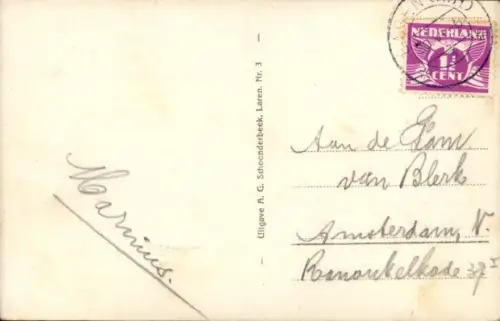 NEDERLAND
1½
CENT
Aan de Fam
van Blerk
Amsterdam, N.
Ranonkelkade 37 I
Marinus.
Uitgave A. G. Schoonderbeek, Laren. Nr. 3